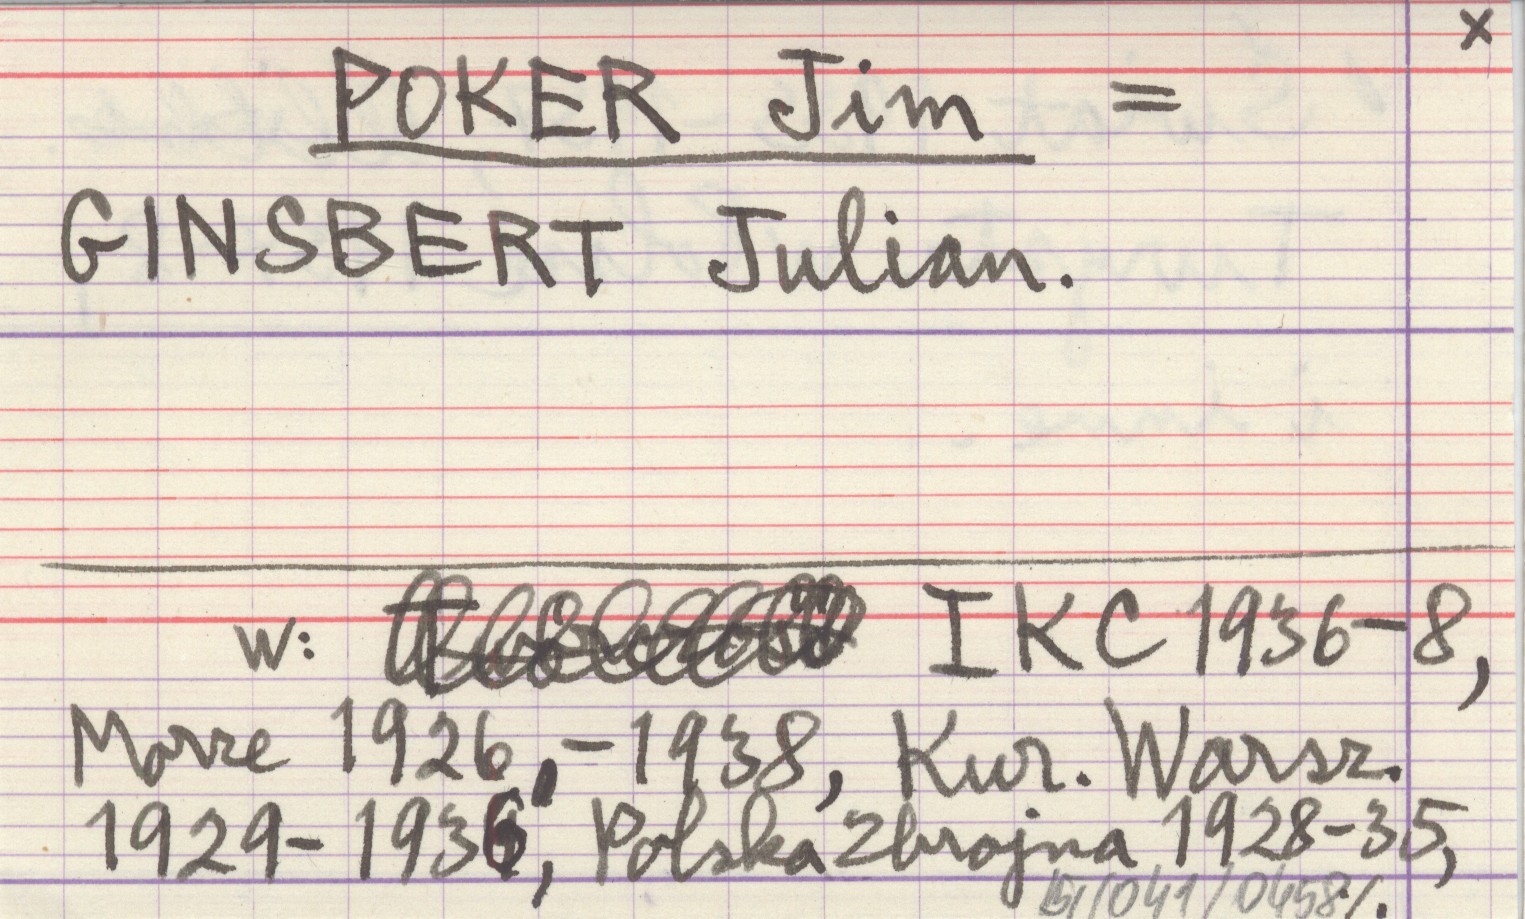 x
POKER Jim =
GINSBERT Julian.
w: IKC 1936-8,
Morze 1926,-1938, Kur. Warsz.
1929-1936, Polska Zbrojna 1928-35,
/041/0458/.